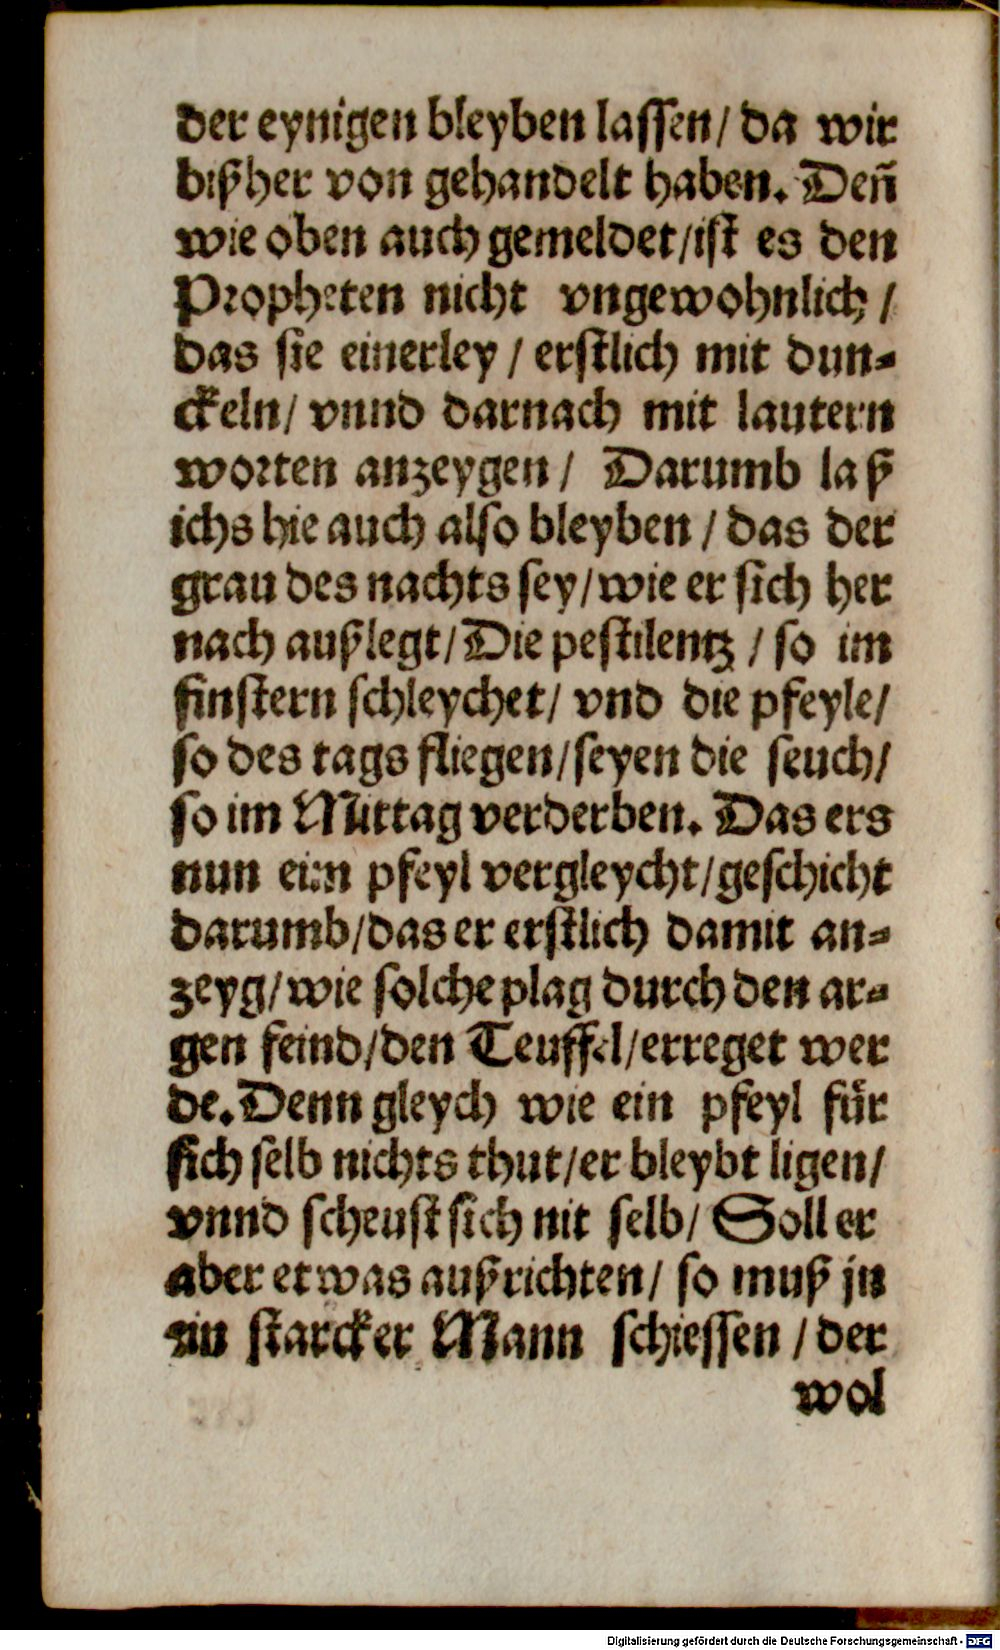 der eynigen bleyben lassen/ da wir
bißher von gehandelt haben. Deñ
wie oben auch gemeldet/ist es den
Propheten nicht vngewohnlich/
das sie einerley/ erstlich mit dun-
ckeln/ vnnd darnach mit lautern
worten anzeygen/ Darumb laß
ichs hie auch also bleyben/ das der
grau des nachts sey/wie er sich her
nach außlegt/Die pestilentz/ so im
finstern schleychet/ vnd die pfeyle/
so des tags fliegen/seyen die seuch/
so im Mittag verderben. Das ers
nun eim pfeyl vergleycht/geschicht
darumb/das er erstlich damit an-
zeyg/wie solche plag durch den ar-
gen feind/den Teuffel/erreget wer
de. Denn gleych wie ein pfeyl für
sich selb nichts thut/er bleybt ligen/
vnnd scheust sich nit selb/ Soll er
aber etwas außrichten/ so muß jn
ein starcker Mann schiessen/ der
wol
Digitalisierung gefördert durch die Deutsche Forschungsgemeinschaft - DFG